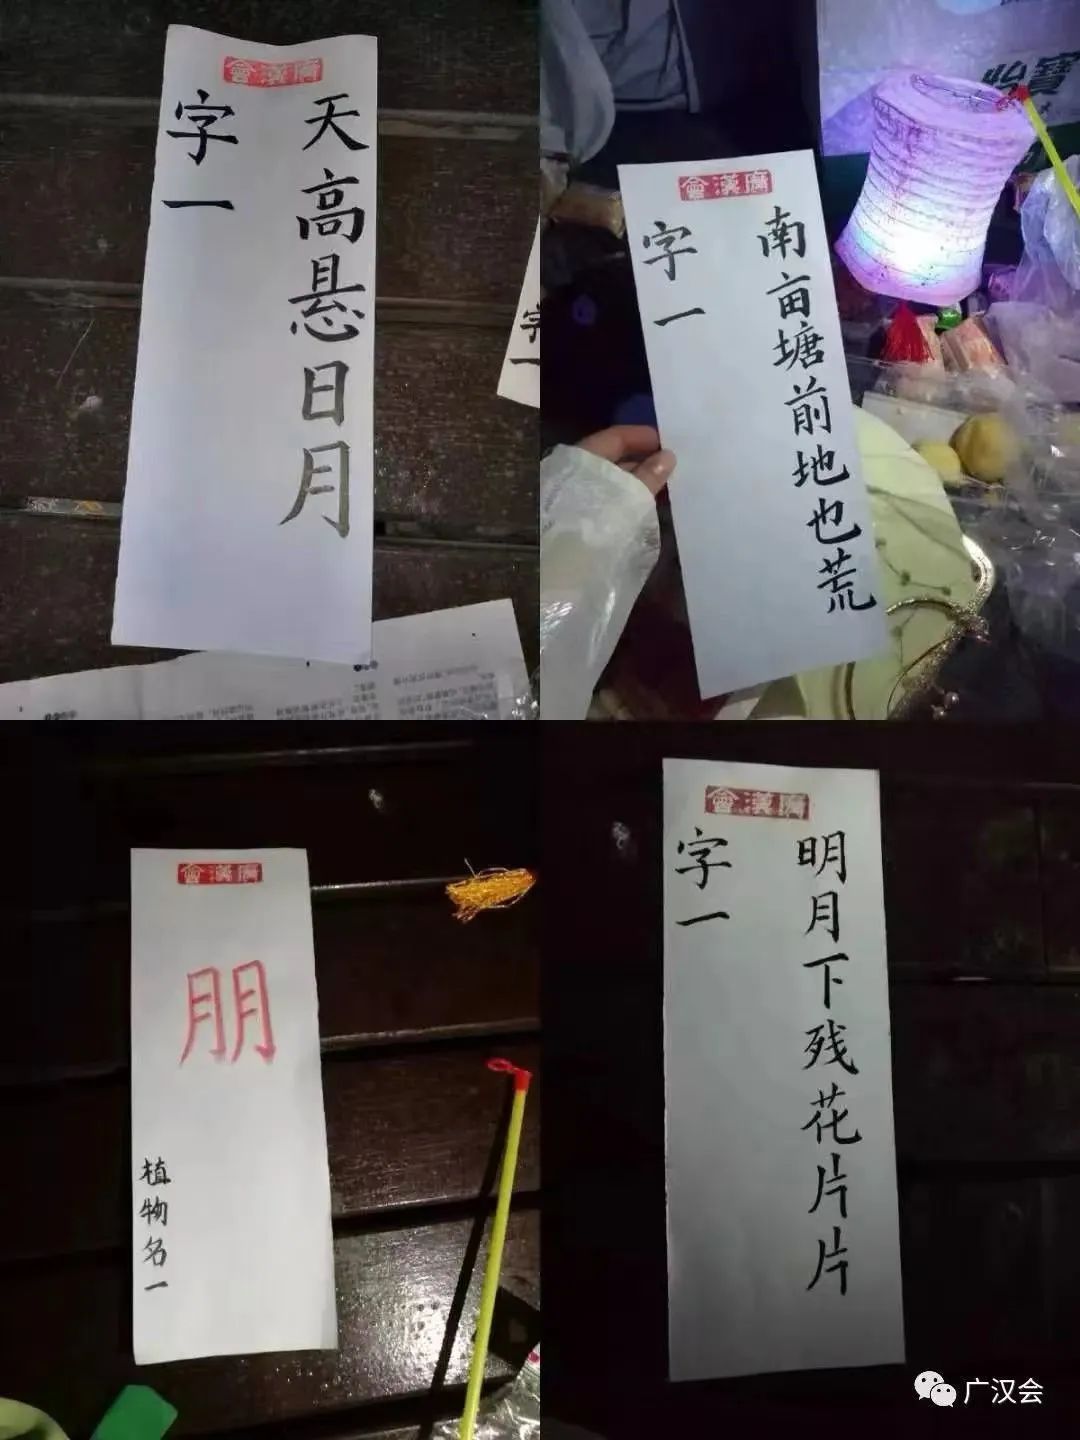 會漢廣
天高悬日月
字一
字一
怡寶
會漢廣
南亩塘前地也荒
字一
會漢廣
朋
植物名一
會漢廣
明月下残花片片
字一
广汉会